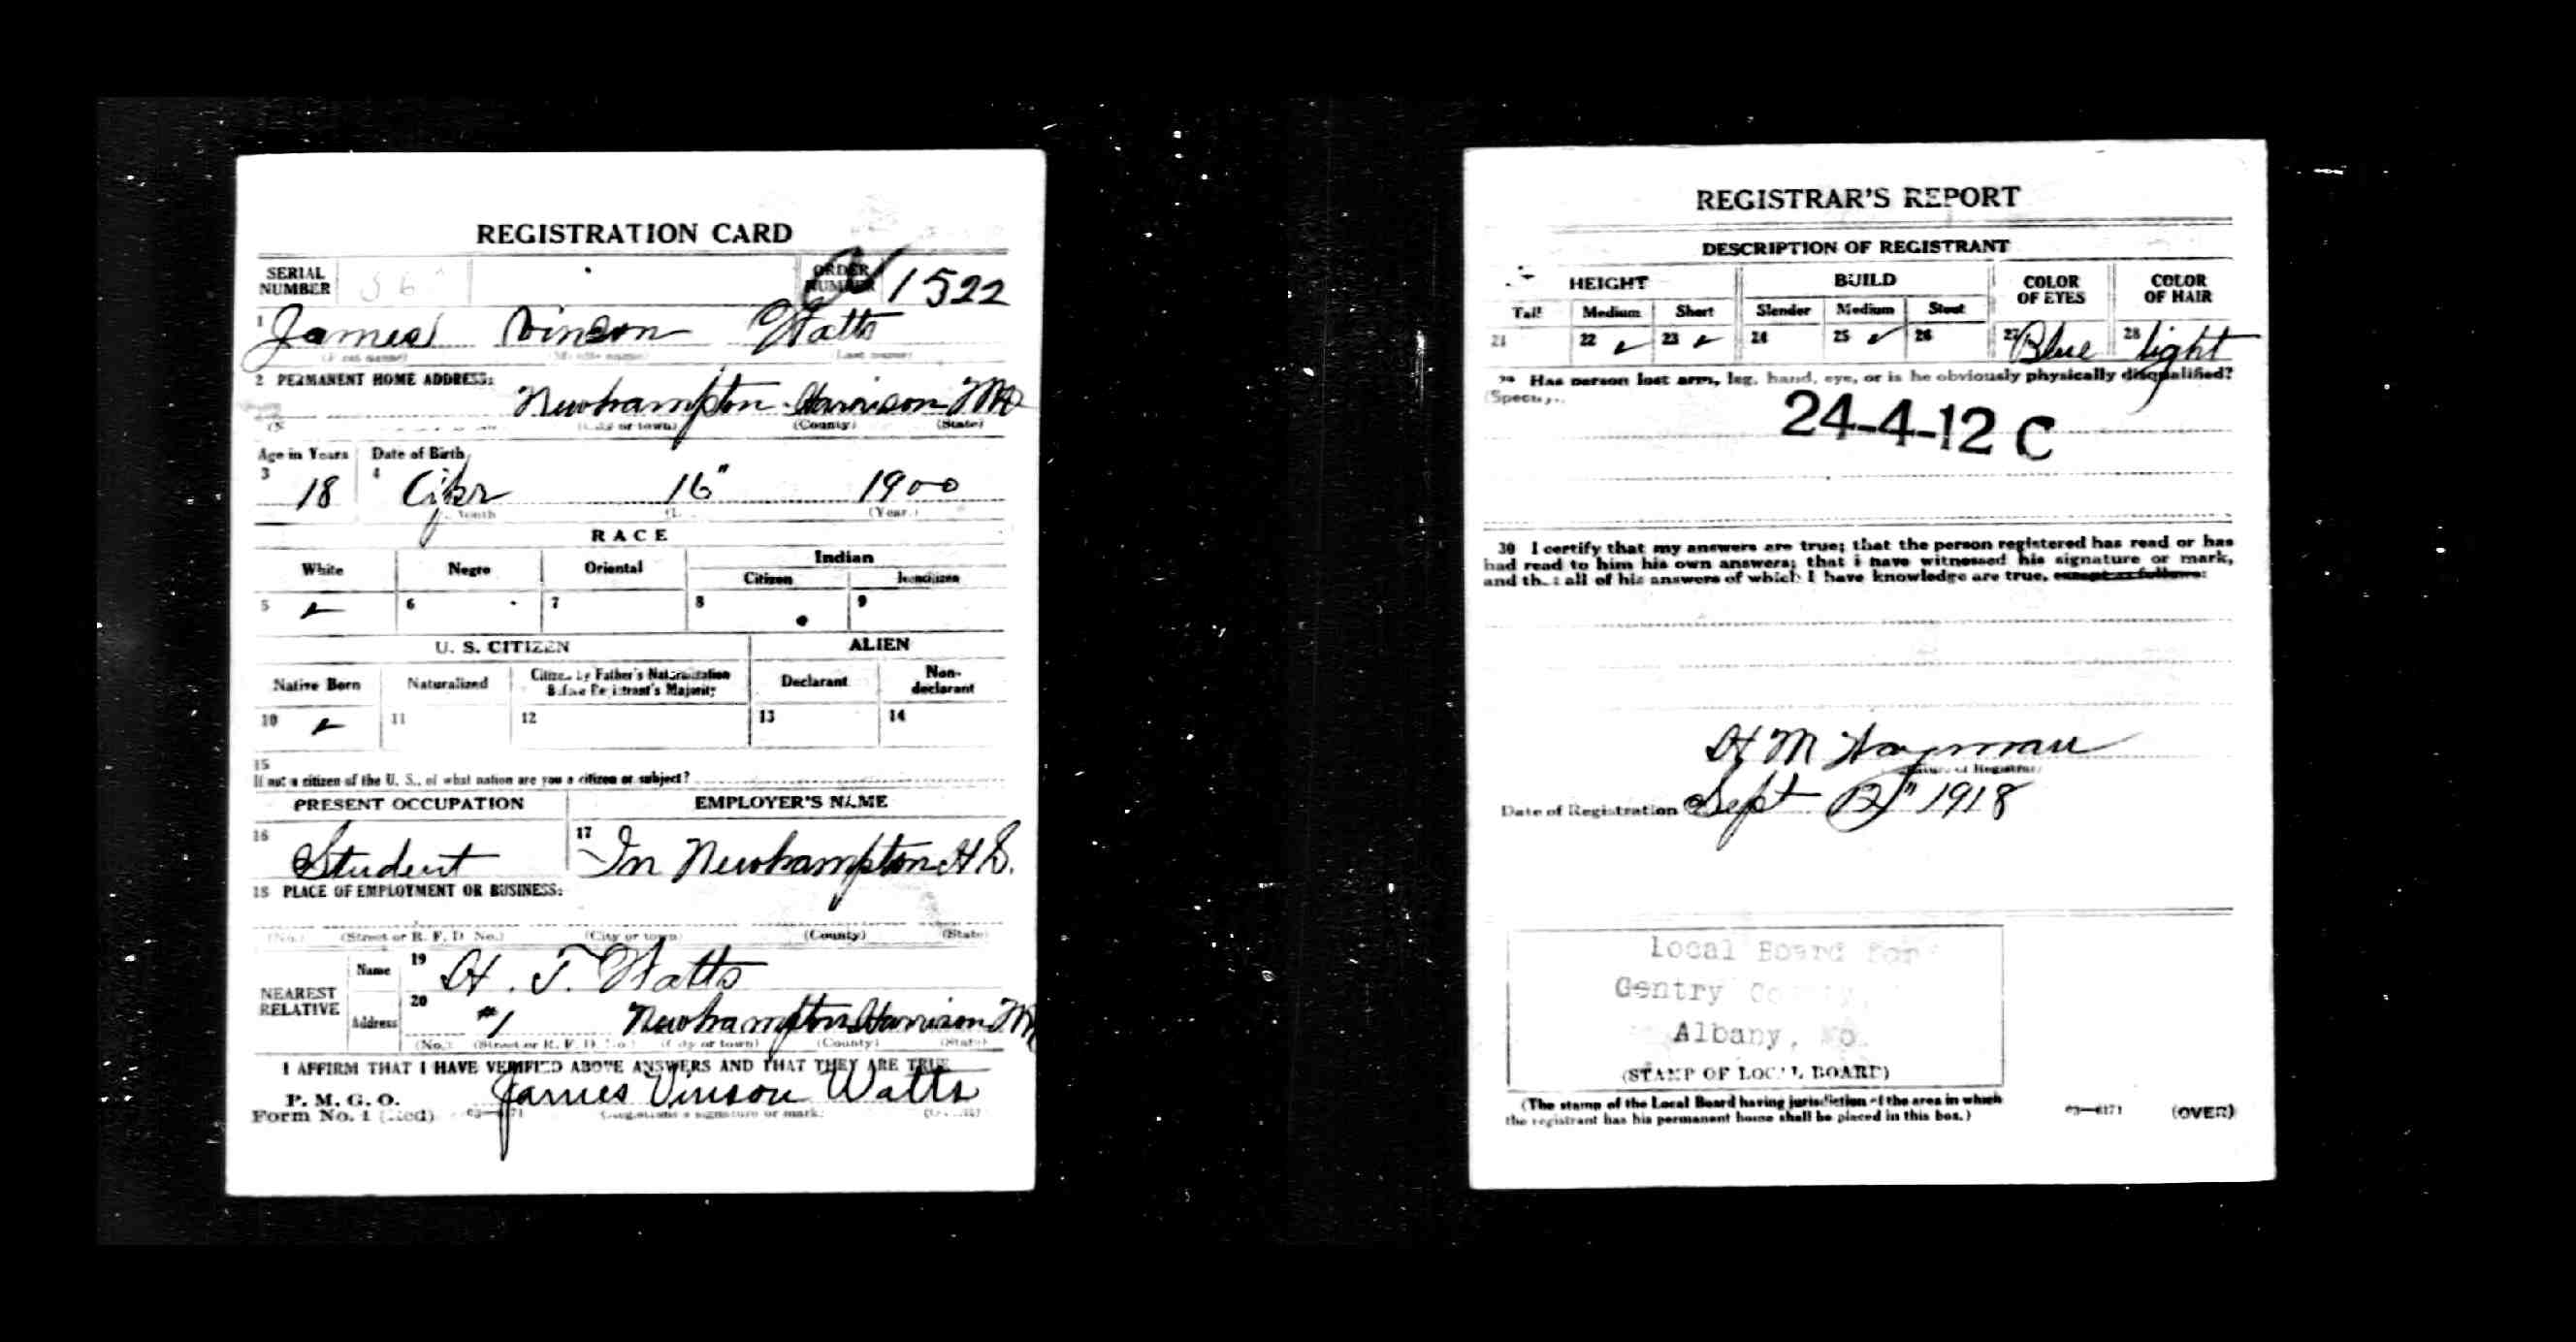 REGISTRATION CARD
SERIAL NUMBER
ORDER NUMBER A 1522
1 James Vinson Watts
(First name) (Middle name) (Last name)
2 PERMANENT HOME ADDRESS:
Newhampton Harrison Mo
(City or town) (County) (State)
Age in Years Date of Birth
3 18 4 Apr 16" 1900
Month (Year.)
RACE
White Negro Oriental Indian
Citizen Noncitizen
5 ✓ 6 7 8 9
U. S. CITIZEN ALIEN
Native Born Naturalized Citizen by Father's Naturalization Before Registrant's Majority Declarant Non-declarant
10 ✓ 11 12 13 14
15
If not a citizen of the U. S., of what nation are you a citizen or subject?
PRESENT OCCUPATION EMPLOYER'S NAME
16 Student 17 In Newhampton H S.
18 PLACE OF EMPLOYMENT OR BUSINESS:
(No.) (Street or R. F. D. No.) (City or town) (County) (State)
NEAREST RELATIVE
Name 19 H. T. Watts
Address 20 #1 Newhampton Harrison Mo
(No.) (Street or R. F. D. No.) (City or town) (County) (State)
I AFFIRM THAT I HAVE VERIFIED ABOVE ANSWERS AND THAT THEY ARE TRUE
P. M. G. O.
Form No. 1 (Red) James Vinson Watts
(Registrant's signature or mark)
REGISTRAR'S REPORT
DESCRIPTION OF REGISTRANT
HEIGHT BUILD COLOR OF EYES COLOR OF HAIR
Tall Medium Short Slender Medium Stout
21 22 ✓ 23 ✓ 24 25 ✓ 26 27 Blue 28 light
29 Has person lost arm, leg, hand, eye, or is he obviously physically disqualified?
(Specify.)
24-4-12 C
30 I certify that my answers are true; that the person registered has read or has
had read to him his own answers; that I have witnessed his signature or mark,
and that all of his answers of which I have knowledge are true, except as follows:
H M
(Signature of Registrar)
Date of Registration Sept 12" 1918
Local Board for
Gentry County,
Albany, Mo.
(STAMP OF LOCAL BOARD)
(The stamp of the Local Board having jurisdiction of the area in which
the registrant has his permanent home shall be placed in this box.)
03—6171 (OVER)